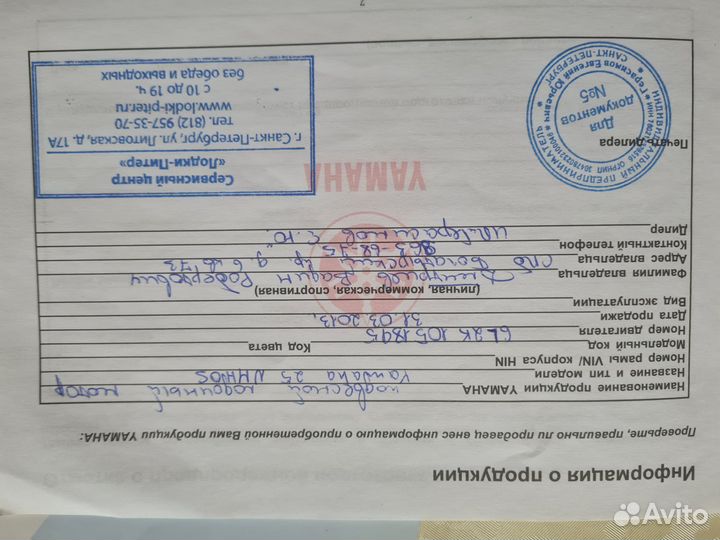 7
Информация о продукции
Проверьте, правильно ли продавец внес информацию о приобретенной Вами продукции YAMAHA:
Наименование продукции YAMAHA подвесной лодочный мотор
Название и тип модели Yamaha 25 NMHOS
Номер рамы VIN/ корпуса HIN
Модельный код Код цвета
Номер двигателя 6L2K 1051895
Дата продажи 31.03.2013.
Вид эксплуатации
(личная, коммерческая, спортивная)
Фамилия владельца Вадим Робертович
Адрес владельца СПб Богатырский пр д 6 кв 73
Контактный телефон 963-68-75
Дилер ИП "Герасимов Е.Ю."
Печать дилера
YAMAHA
Сервисный центр
«Лодки-Питер»
г. Санкт-Петербург, ул. Литовская, д. 17А
тел. (812) 957-35-70
www.lodki-piter.ru
с 10 до 19 ч.
без обеда и выходных
ИНДИВИДУАЛЬНЫЙ ПРЕДПРИНИМАТЕЛЬ
Герасимов Евгений Юрьевич
САНКТ-ПЕТЕРБУРГ
Для
документов
№5
Avito